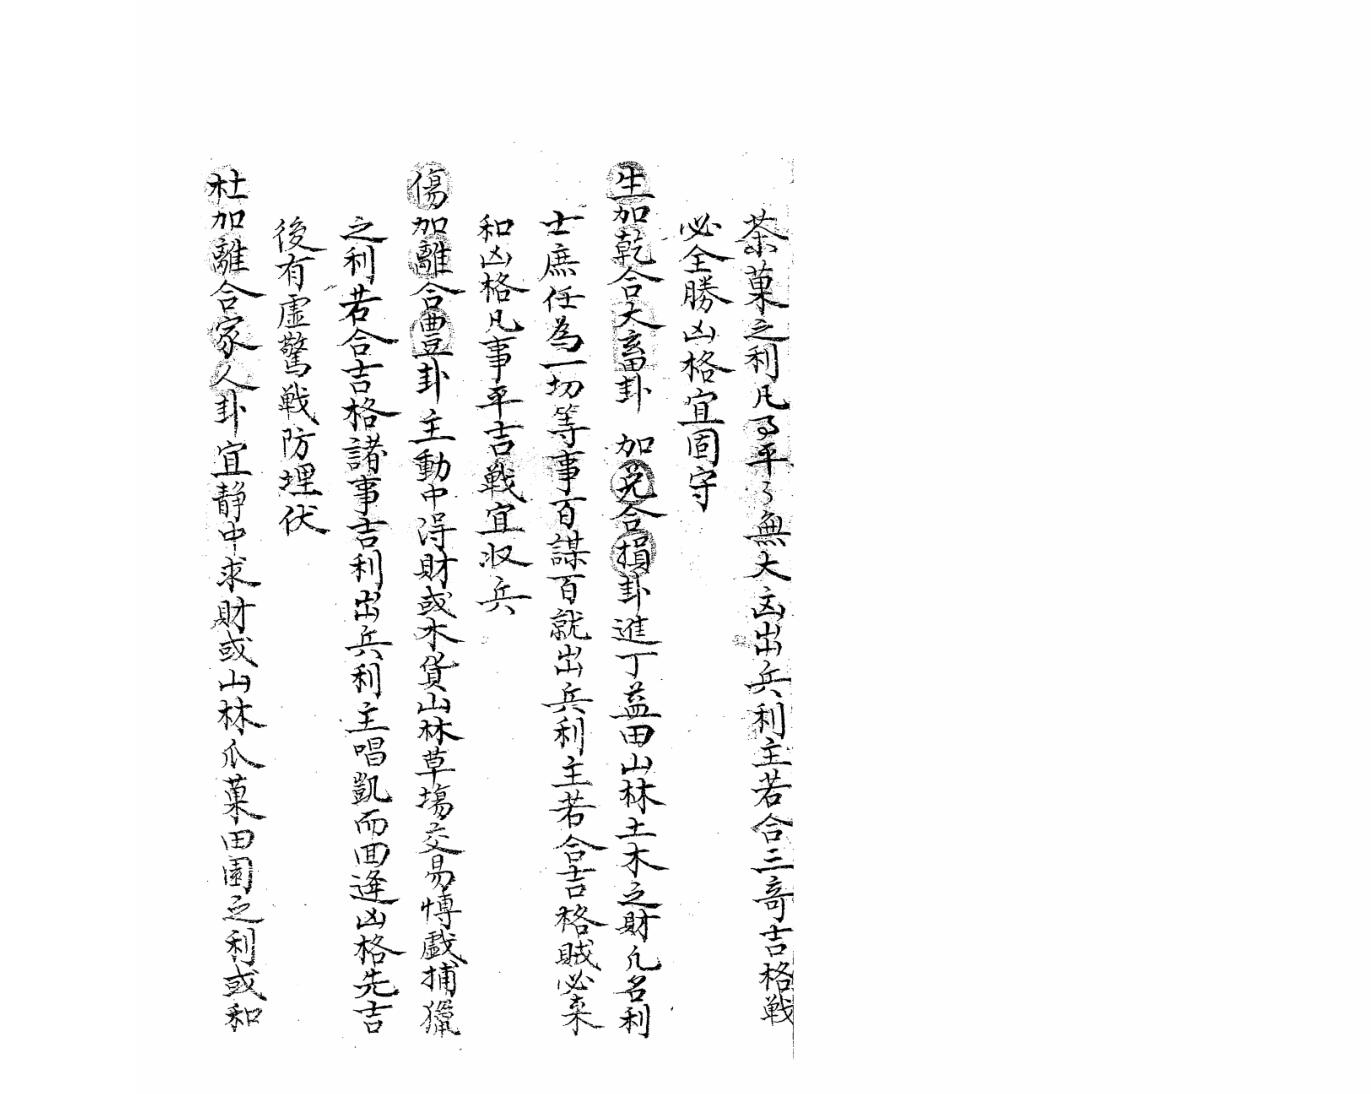 茶菓之利凡事平〻無大凶出兵利主若合三奇吉格戦
必全勝凶格宜固守
生加乾合大畜卦　加兌合損卦進丁益田山林土木之財凡名利
士庶任為一切等事百謀百就出兵利主若合吉格賊必来
和凶格凡事平吉戦宜収兵
傷加離合豊卦主動中得財或木貨山林草塲交易愽戲捕獵
之利若合吉格諸事吉利出兵利主唱凱而囬逢凶格先吉
後有虛驚戦防埋伏
杜加離合家人卦宜静中求財或山林瓜菓田園之利或和